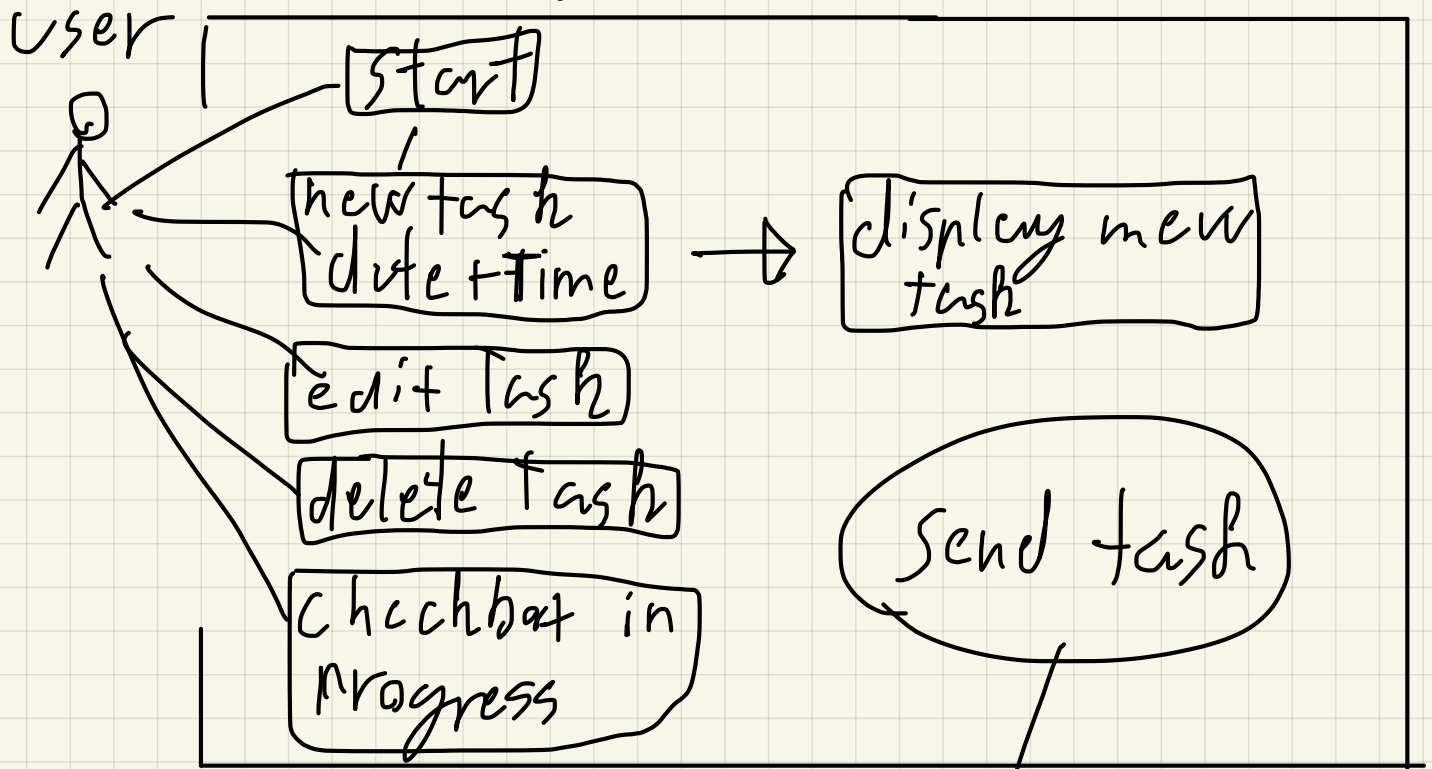 user
start
new task
date + Time
display new
task
edit Task
delete Task
send task
checkbox in
progress